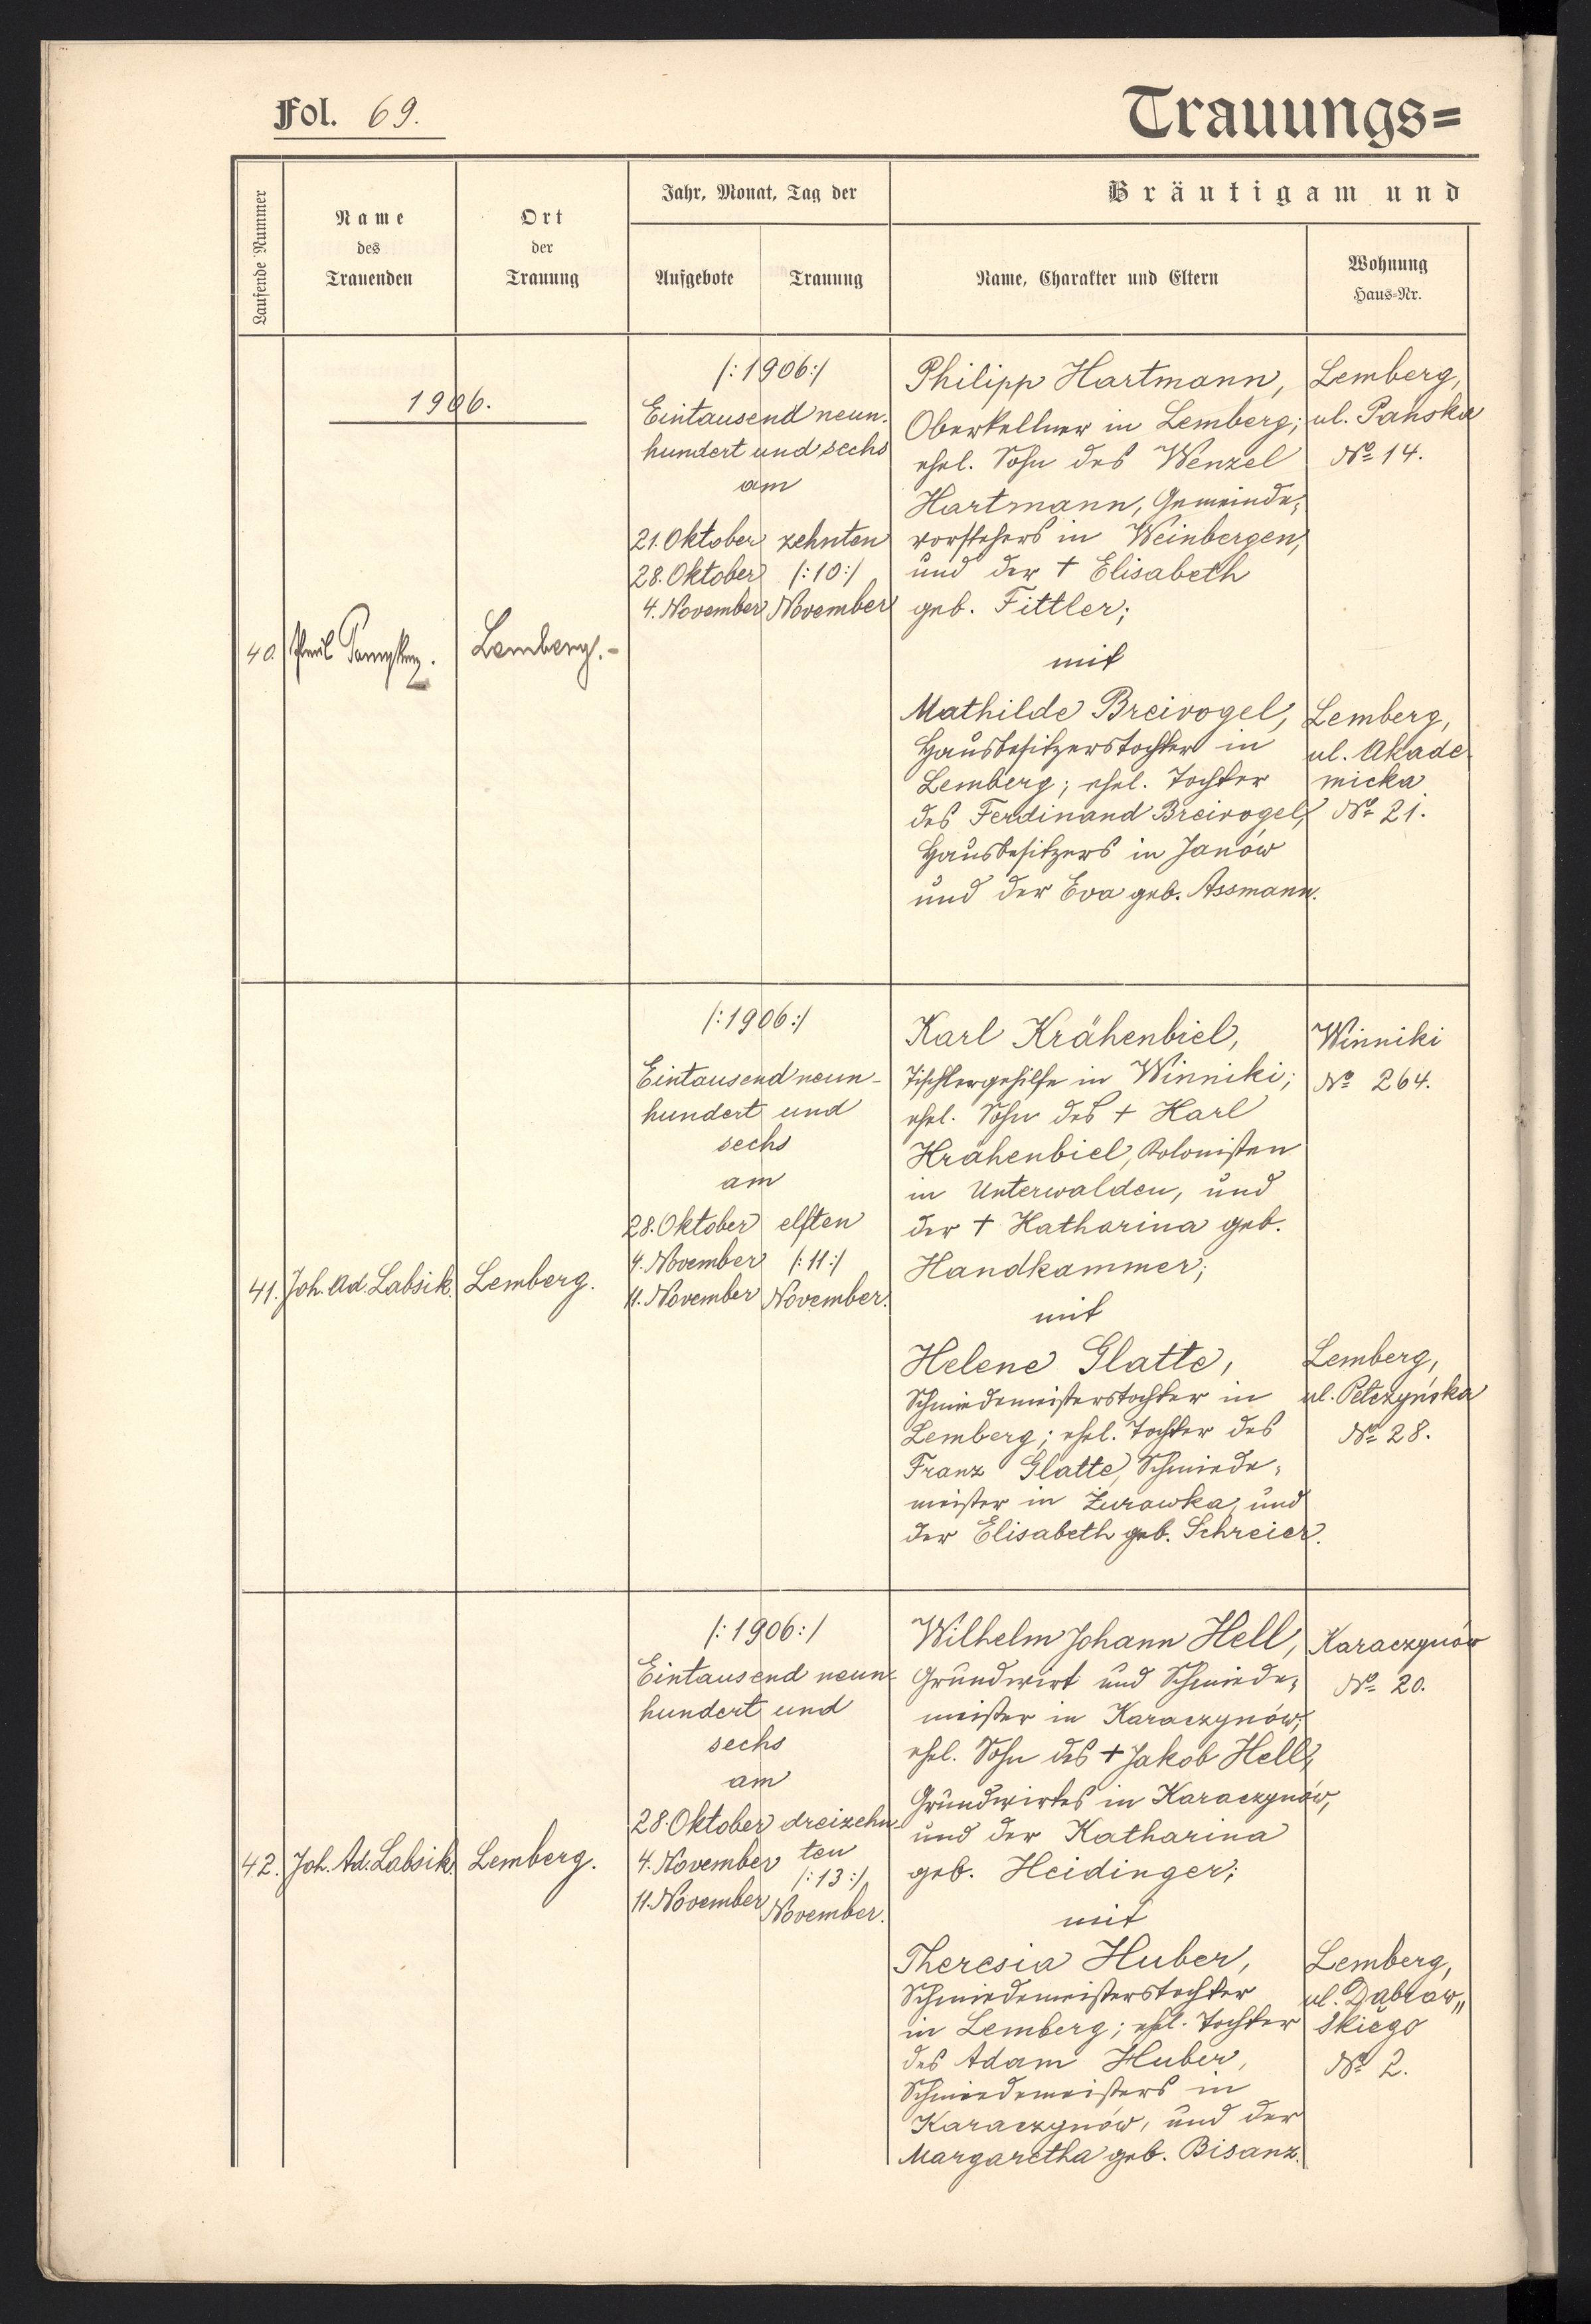 Fol. 69.
Trauungs=
Laufende Nummer
Name
des
Trauenden
Ort
der
Trauung
Jahr, Monat, Tag der
Aufgebote
Trauung
Bräutigam und
Name, Charakter und Eltern
Wohnung
Haus=Nr.
1906.
40.
Lemberg.-
/:1906:/
Eintausend neun-
hundert und sechs
am
21. Oktober zehnten
28. Oktober /:10:/
4. November November
Philipp Hartmann,
Oberkellner in Lemberg;
ehel. Sohn des Wenzel
Hartmann, Gemeinde-
vorstehers in Weinbergen,
und der † Elisabeth
geb. Fittler;
mit
Mathilde Breivogel,
Hausbesitzerstochter in
Lemberg; ehel. Tochter
des Ferdinand Breivogel,
Hausbesitzers in Janów
und der Eva geb. Assmann.
Lemberg,
ul. Pańska
No 14.
Lemberg,
ul. Akade-
micka
No 21.
41.
Joh. Ad. Labsik.
Lemberg.
/:1906:/
Eintausend neun-
hundert und
sechs
am
28. Oktober elften
4. November /:11:/
11. November November.
Karl Krähenbiel,
Tischlergehilfe in Winniki;
ehel. Sohn des † Karl
Krähenbiel, Kolonisten
in Unterwalden, und
der † Katharina geb.
Handkammer;
mit
Helene Glatte,
Schmiedemeisterstochter in
Lemberg; ehel. Tochter des
Franz Glatte, Schmiede-
meister in Żurawka, und
der Elisabeth geb. Schreier.
Winniki
No 264.
Lemberg,
ul. Pełczyńska
No 28.
42.
Joh. Ad. Labsik.
Lemberg.
/:1906:/
Eintausend neun-
hundert und
sechs
am
28. Oktober dreizehn-
4. November ten
/:13:/
11. November November.
Wilhelm Johann Hell,
Grundwirt und Schmiede-
meister in Karaczynów;
ehel. Sohn des † Jakob Hell,
Grundwirtes in Karaczynów,
und der Katharina
geb. Heidinger;
mit
Theresia Huber,
Schmiedemeisterstochter
in Lemberg; ehel. Tochter
des Adam Huber,
Schmiedemeisters in
Karaczynów, und der
Margaretha geb. Bisanz.
Karaczynów
No 20.
Lemberg,
ul. Dąbrow„
skiego
No 2.